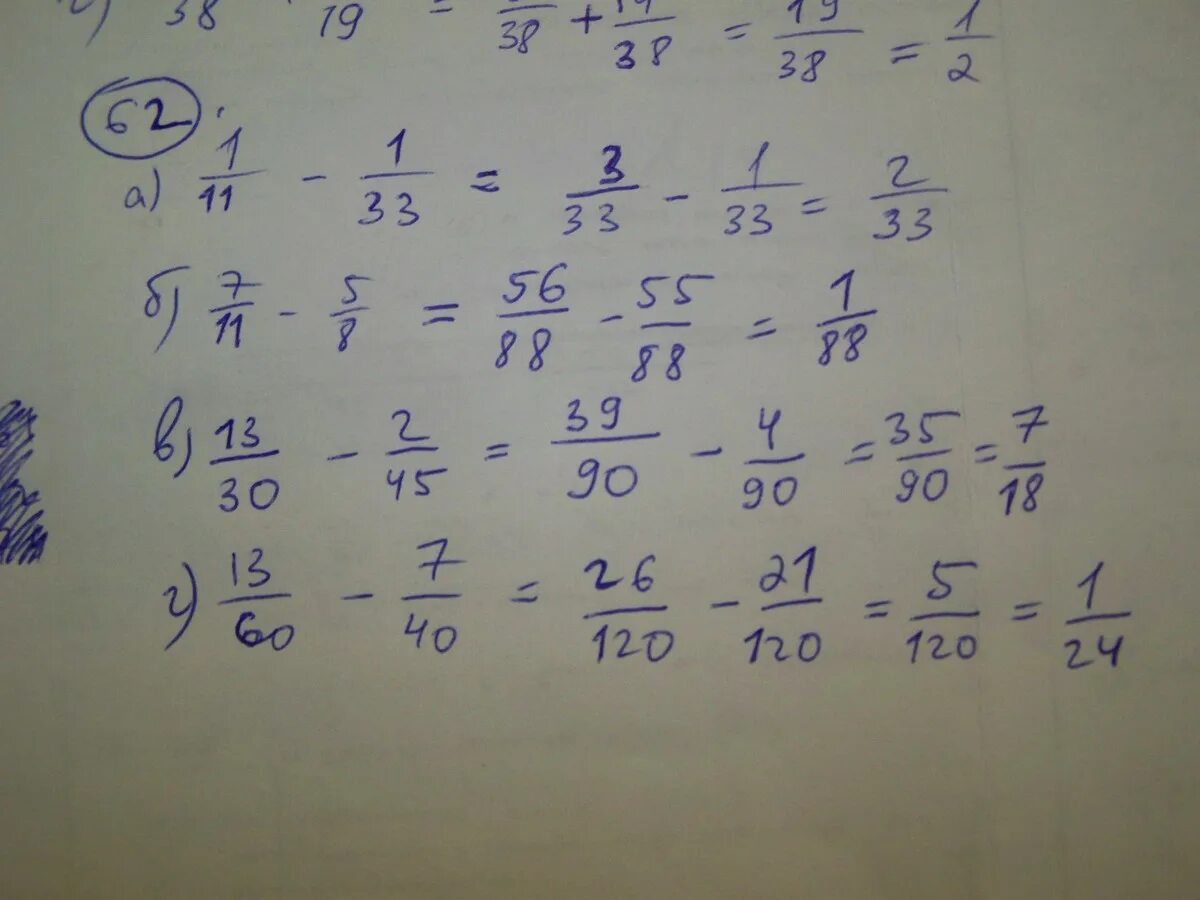 38 19 = 38 + 38 = 19/38 = 1/2
62.
а) 1/11 - 1/33 = 3/33 - 1/33 = 2/33
б) 7/11 - 5/8 = 56/88 - 55/88 = 1/88
в) 13/30 - 2/45 = 39/90 - 4/90 = 35/90 = 7/18
г) 13/60 - 7/40 = 26/120 - 21/120 = 5/120 = 1/24